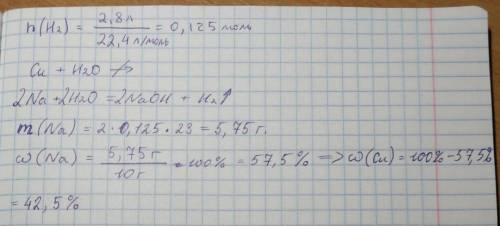 n(H₂) = 2,8 л / 22,4 л/моль = 0,125 моль
Cu + H₂O ↛
2Na + 2H₂O = 2NaOH + H₂↑
m(Na) = 2·0,125·23 = 5,75 г.
ω(Na) = 5,75 г / 10 г · 100% = 57,5% => ω(Cu) = 100% - 57,5%
= 42,5%